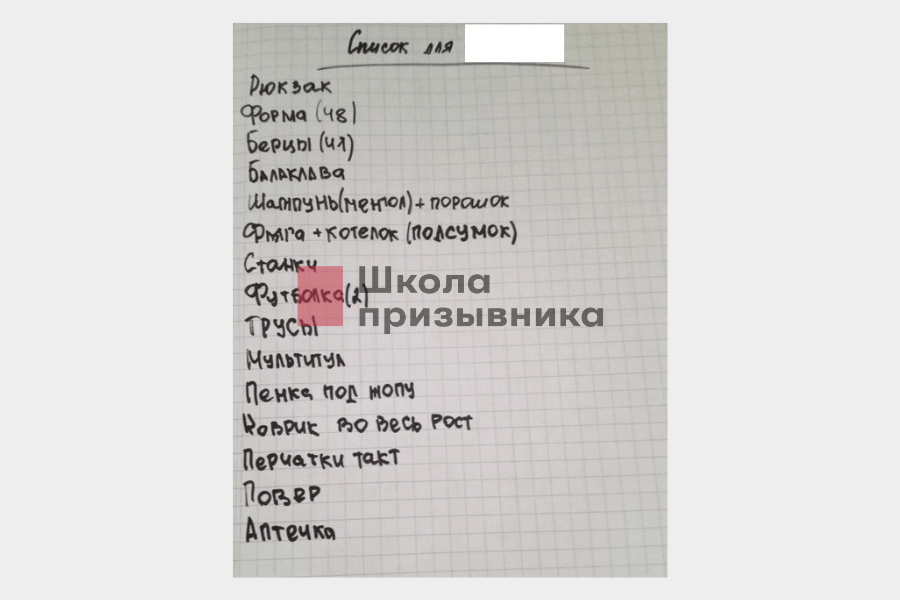 Список для
Рюкзак
Форма (48)
Берцы (41)
Балаклава
Шампунь(ментол)+порошок
Фляга + котелок (подсумок)
Станки
Футболка(2)
Школа
призывника
Трусы
Мультитул
Пенка под жопу
Коврик во весь рост
Перчатки такт
Повер
Аптечка